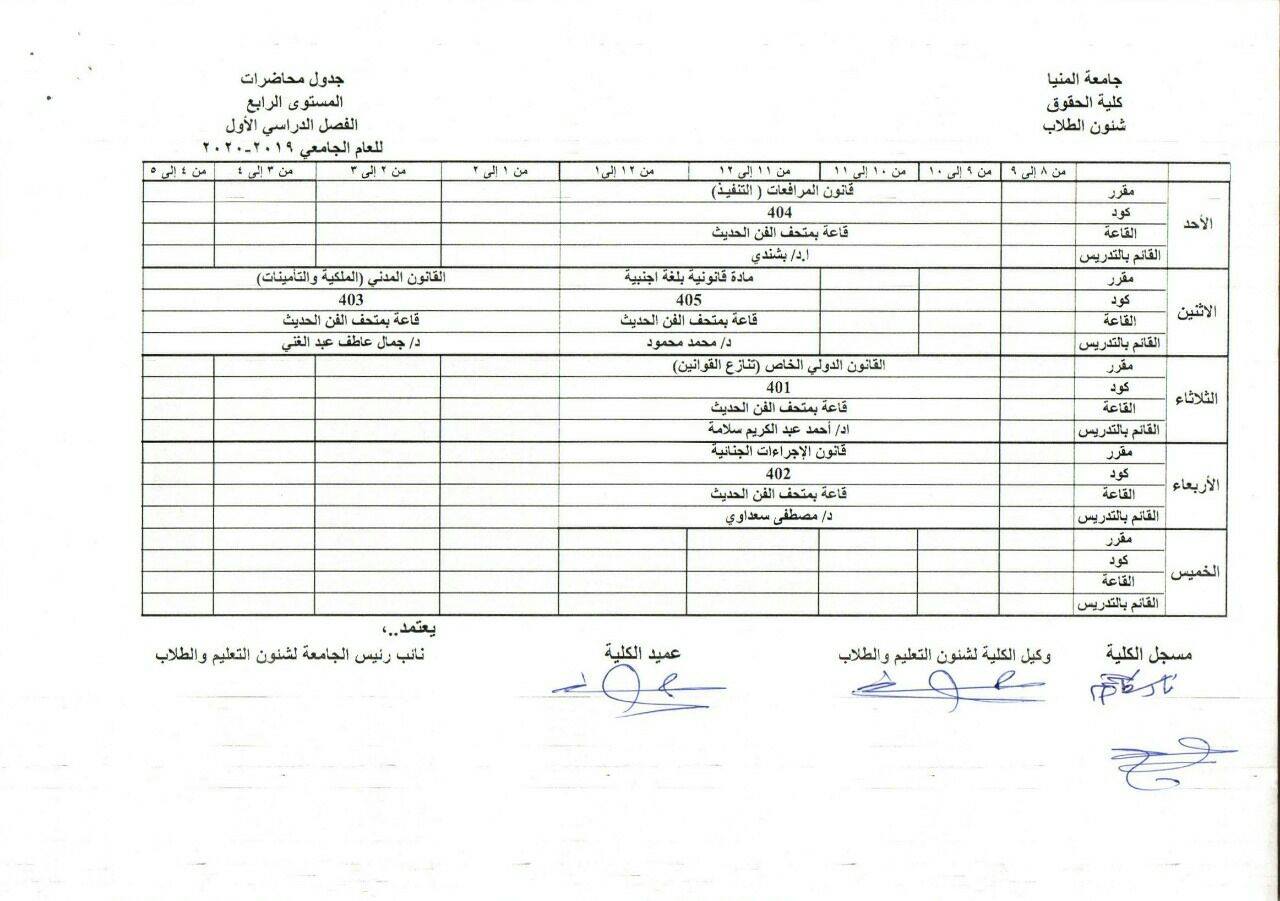 جامعة المنيا
كلية الحقوق
شئون الطلاب
جدول محاضرات
المستوى الرابع
الفصل الدراسي الأول
للعام الجامعي ٢٠١٩-٢٠٢٠
من ٨ إلى ٩ من ٩ إلى ١٠ من ١٠ إلى ١١ من ١١ إلى ١٢ من ١٢ إلى ١ من ١ إلى ٢ من ٢ إلى ٣ من ٣ إلى ٤ من ٤ إلى ٥
الأحد
مقرر قانون المرافعات ( التنفيذ)
كود 404
القاعة قاعة بمتحف الفن الحديث
القائم بالتدريس ا.د/ بشندي
الاثنين
مقرر مادة قانونية بلغة اجنبية القانون المدني (الملكية والتأمينات)
كود 405 403
القاعة قاعة بمتحف الفن الحديث قاعة بمتحف الفن الحديث
القائم بالتدريس د/ محمد محمود د/ جمال عاطف عبد الغني
الثلاثاء
مقرر القانون الدولي الخاص (تنازع القوانين)
كود 401
القاعة قاعة بمتحف الفن الحديث
القائم بالتدريس اد/ أحمد عبد الكريم سلامة
الأربعاء
مقرر قانون الإجراءات الجنائية
كود 402
القاعة قاعة بمتحف الفن الحديث
القائم بالتدريس د/ مصطفى سعداوي
الخميس
مقرر
كود
القاعة
القائم بالتدريس
يعتمد..،
مسجل الكلية وكيل الكلية لشئون التعليم والطلاب عميد الكلية نائب رئيس الجامعة لشئون التعليم والطلاب